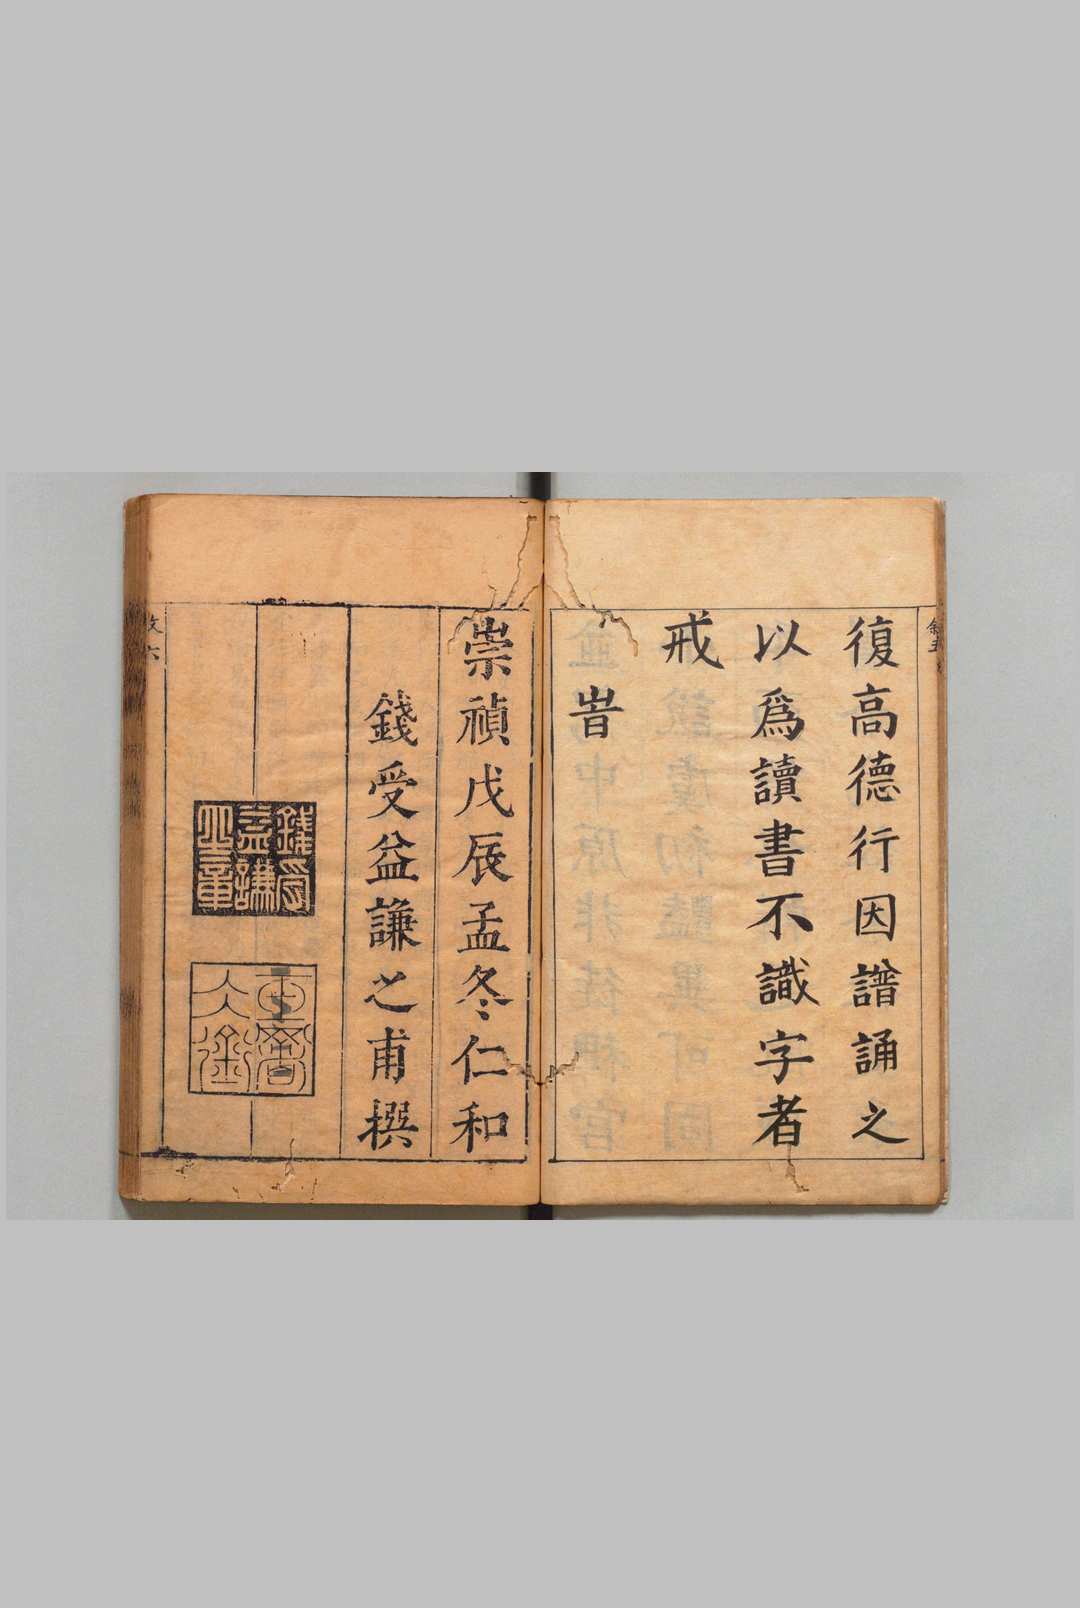 復高德行因譜誦之
以爲讀書不識字者
戒
旹
崇禎戊辰孟冬仁和
錢受益謙之甫撰
錢受
益謙
之章